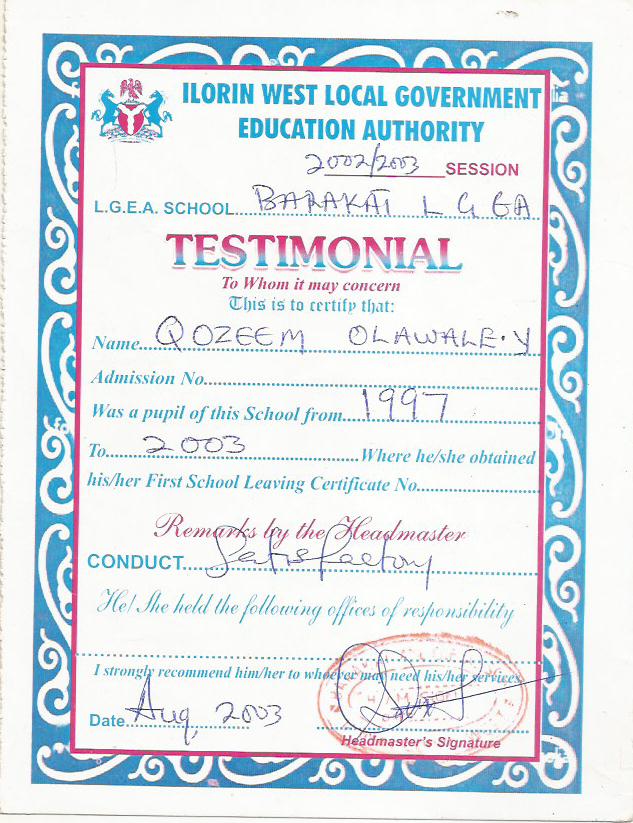 ILORIN WEST LOCAL GOVERNMENT
EDUCATION AUTHORITY
2002/2003 SESSION
L.G.E.A. SCHOOL BARAKAT L G EA
TESTIMONIAL
To Whom it may concern
This is to certify that:
Name QOZEEM OLAWALE.Y
Admission No
Was a pupil of this School from 1997
To 2003 Where he/she obtained
his/her First School Leaving Certificate No
Remarks by the Headmaster
CONDUCT Satisfactory
He/She held the following offices of responsibility
I strongly recommend him/her to whoever may need his/her services.
Date Aug, 2003
Headmaster's Signature